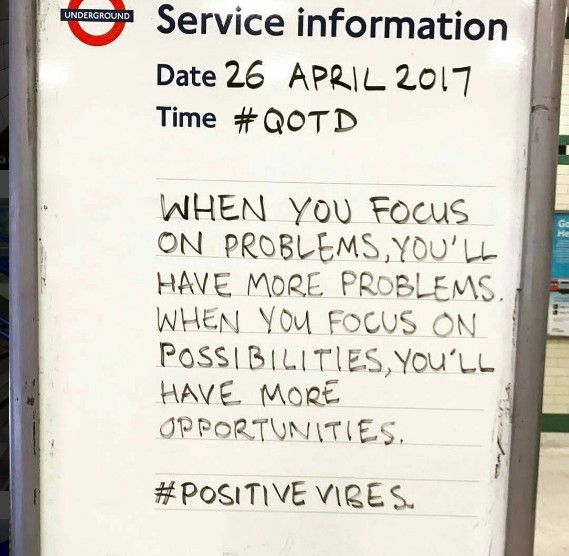 UNDERGROUND
Service information
Date 26 APRIL 2017
Time #QOTD
WHEN YOU FOCUS
ON PROBLEMS, YOU'LL
HAVE MORE PROBLEMS.
WHEN YOU FOCUS ON
POSSIBILITIES, YOU'LL
HAVE MORE
OPPORTUNITIES.
#POSITIVE VIBES.